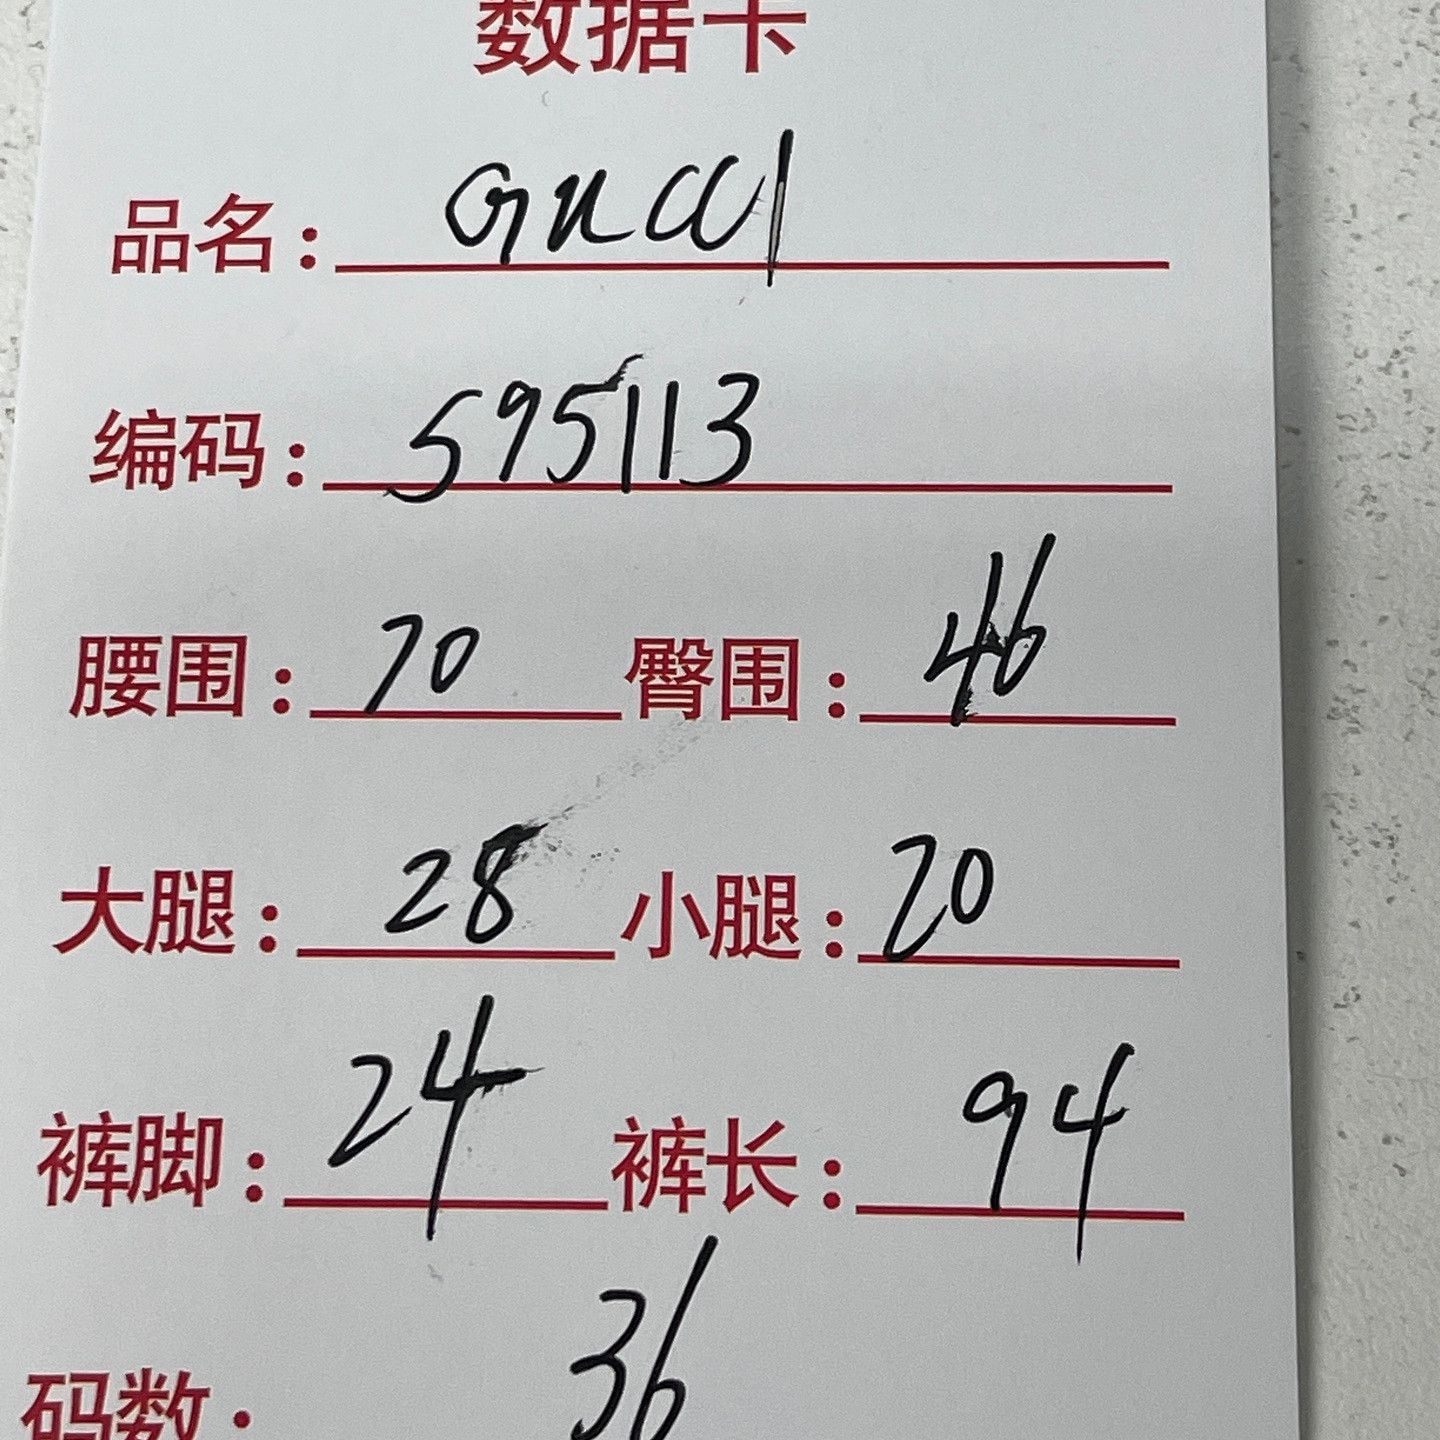 数据卡
品名：Gucci
编码：595113
腰围：70 臀围：46
大腿：28 小腿：20
裤脚：24 裤长：94
码数：36